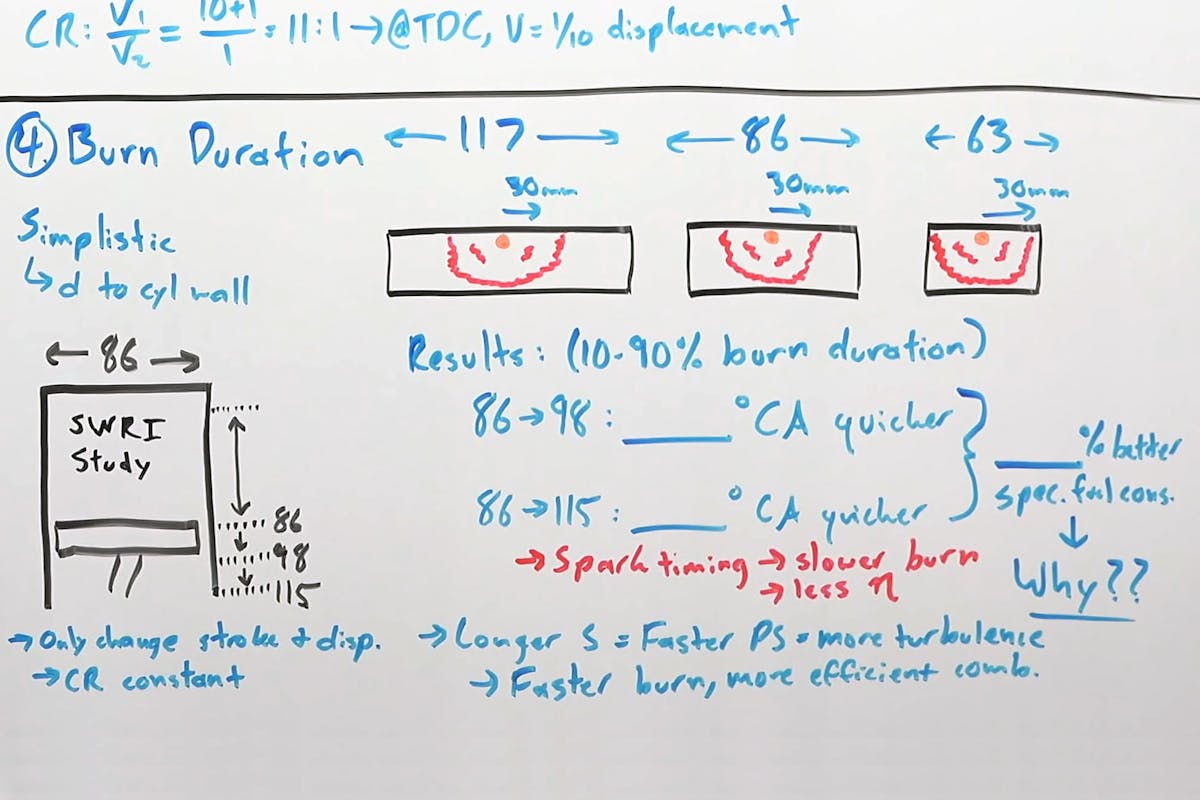 CR: V₁/V₂ = 10+1/1 = 11:1 → @TDC, V = 1/10 displacement
④ Burn Duration
← 117 →
← 86 →
← 63 →
30mm
30mm
30mm
Simplistic
↳ d to cyl wall
← 86 →
SWRI
Study
86
98
115
→ Only change stroke & disp.
→ CR constant
Results: (10-90% burn duration)
86→98: ____ °CA quicker
86→115: ____ °CA quicker
____% better
spec. fuel cons.
Why??
→ Spark timing → slower burn
→ less η
→ Longer S = Faster PS = more turbulence
→ Faster burn, more efficient comb.